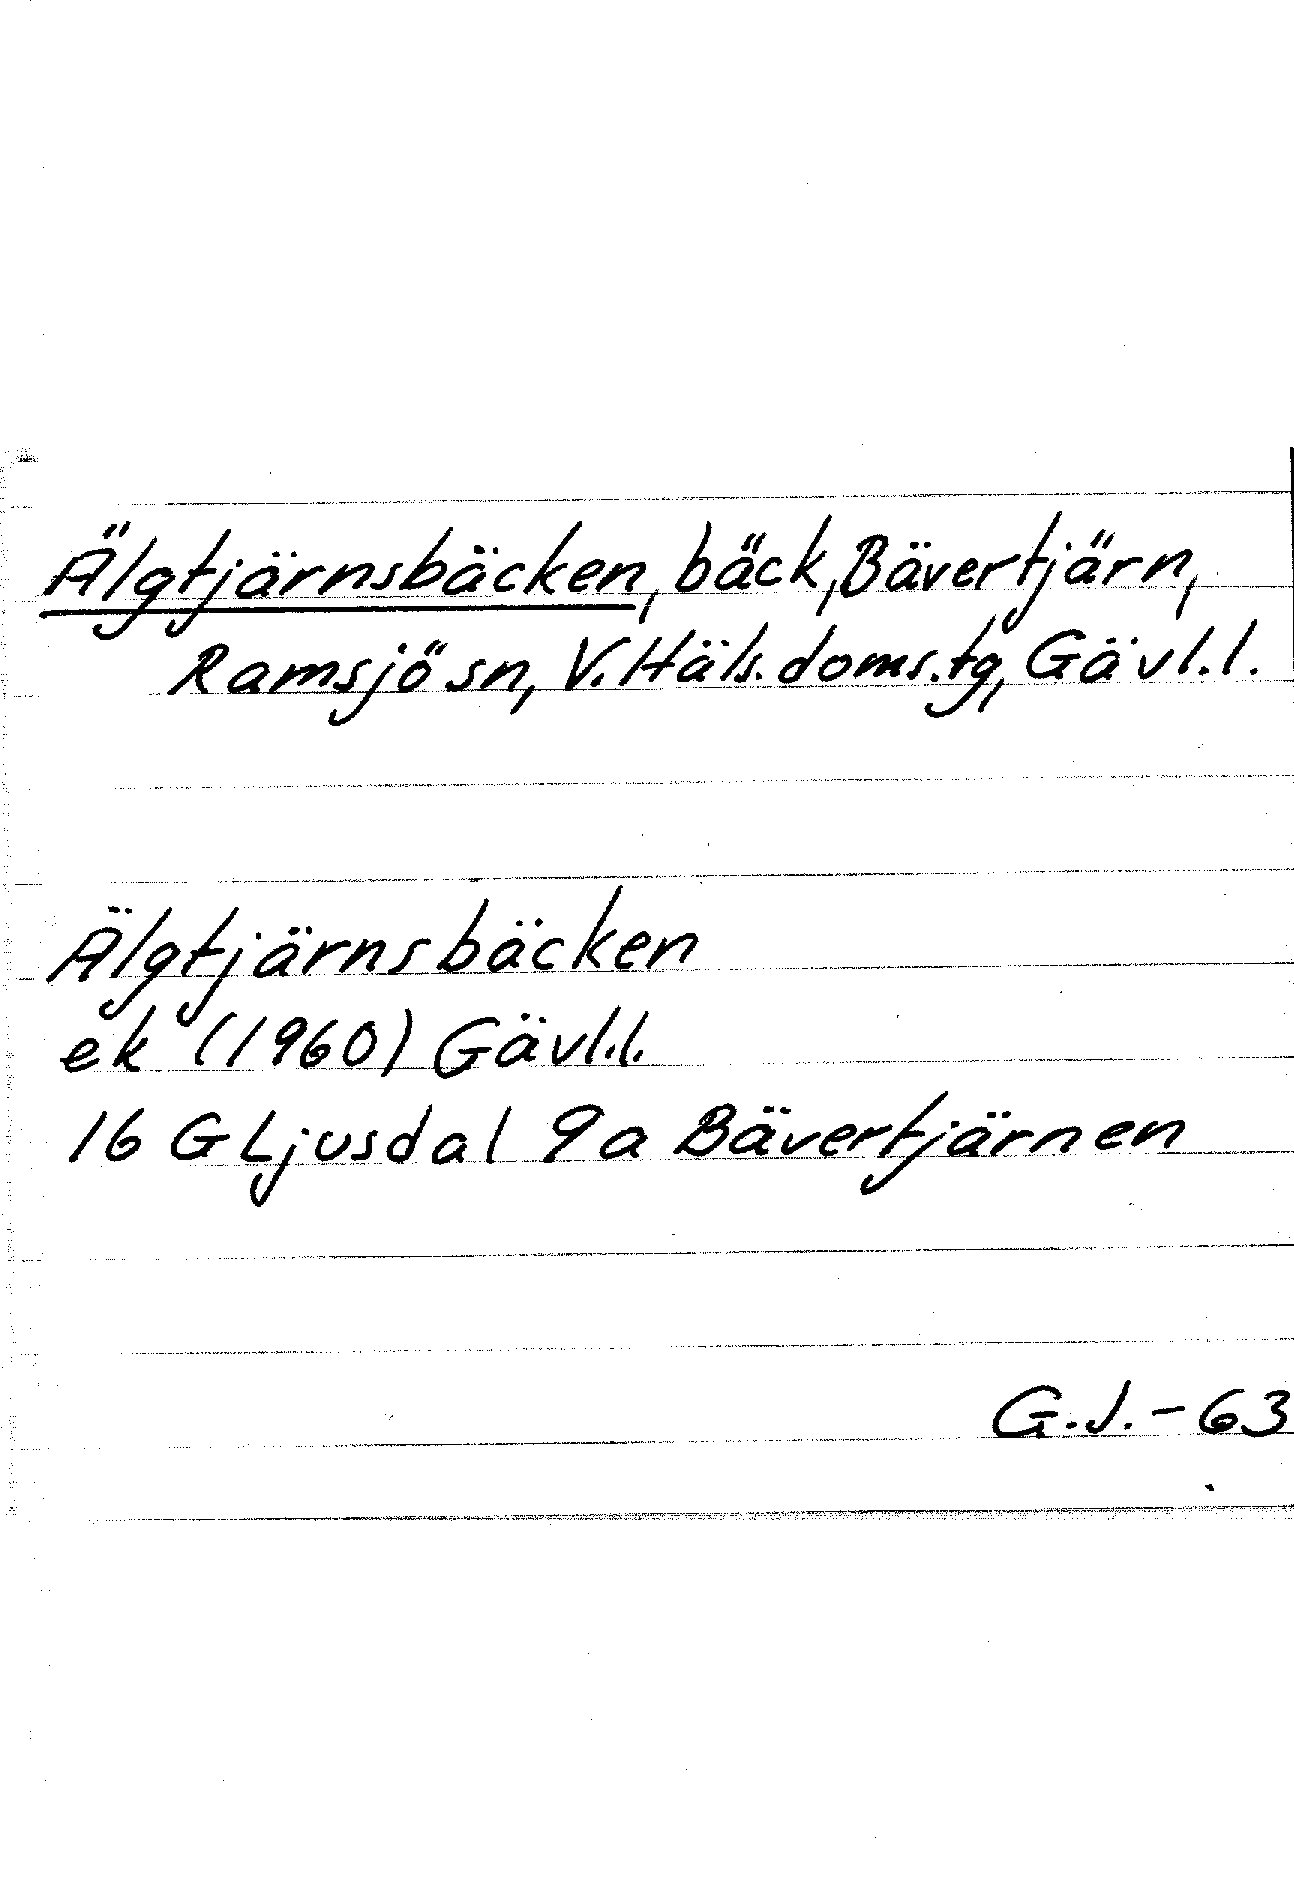 Älgtjärnsbäcken, bäck, Bävertjärn,
Ramsjö sn, V. Häls. doms.tg, Gävl.l.
Älgtjärnsbäcken
ek (1960) Gävl.l.
16 G Ljusdal 9a Bävertjärnen
G.J.-63